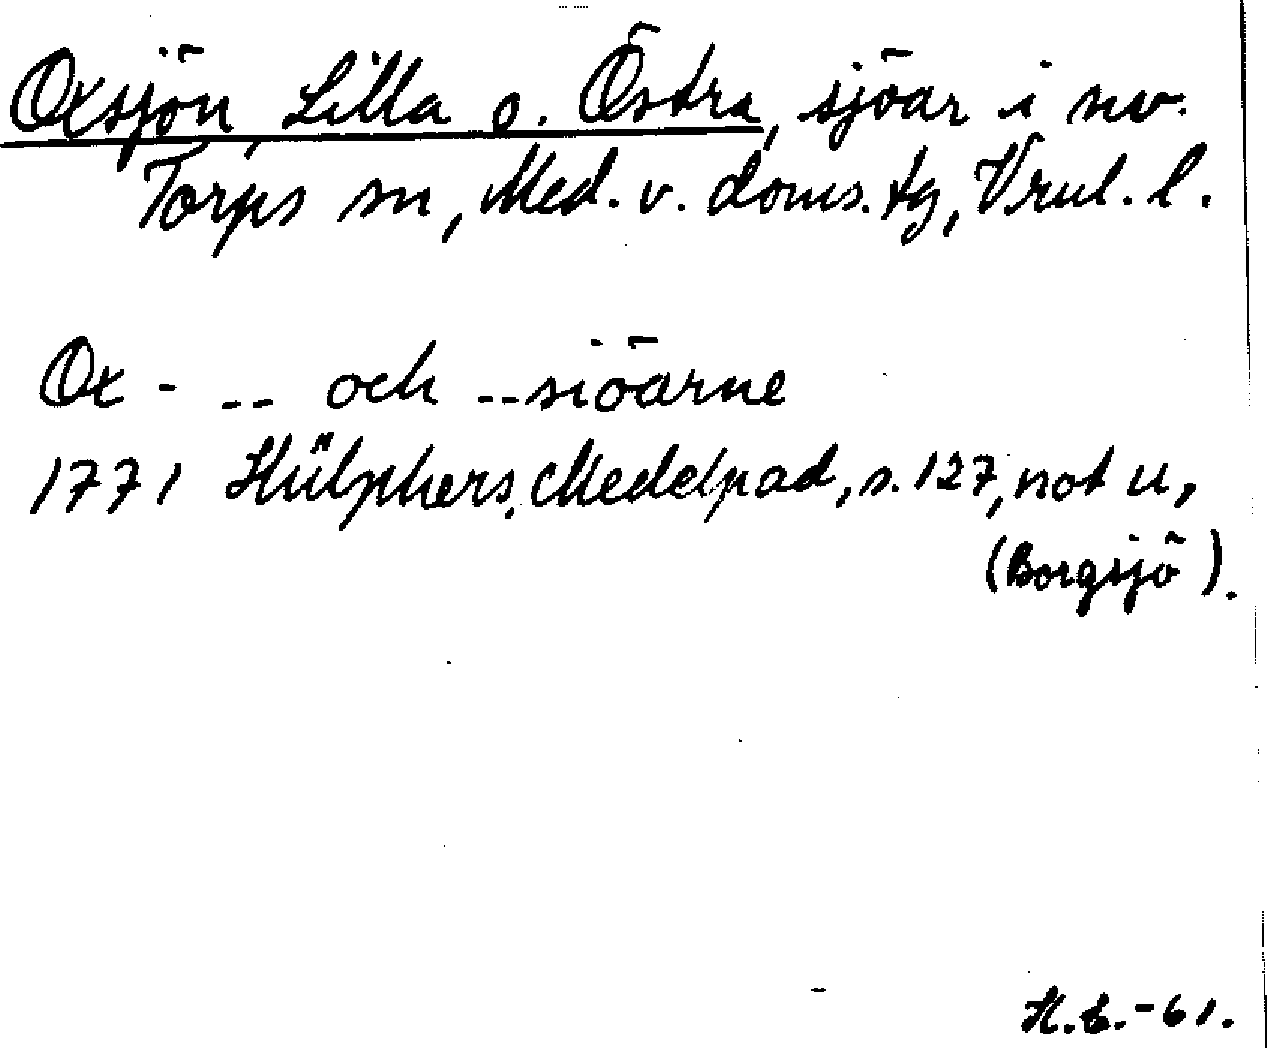 Oxsjön, Lilla o. Östra, sjöar i nv.
Torps sn, Med. v. doms. tg, Vrnl. l.
Ox - -- och --siöarne
1771 Hülphers, Medelpad, s. 127, not u,
(Borgsjö).
H.E.-61.